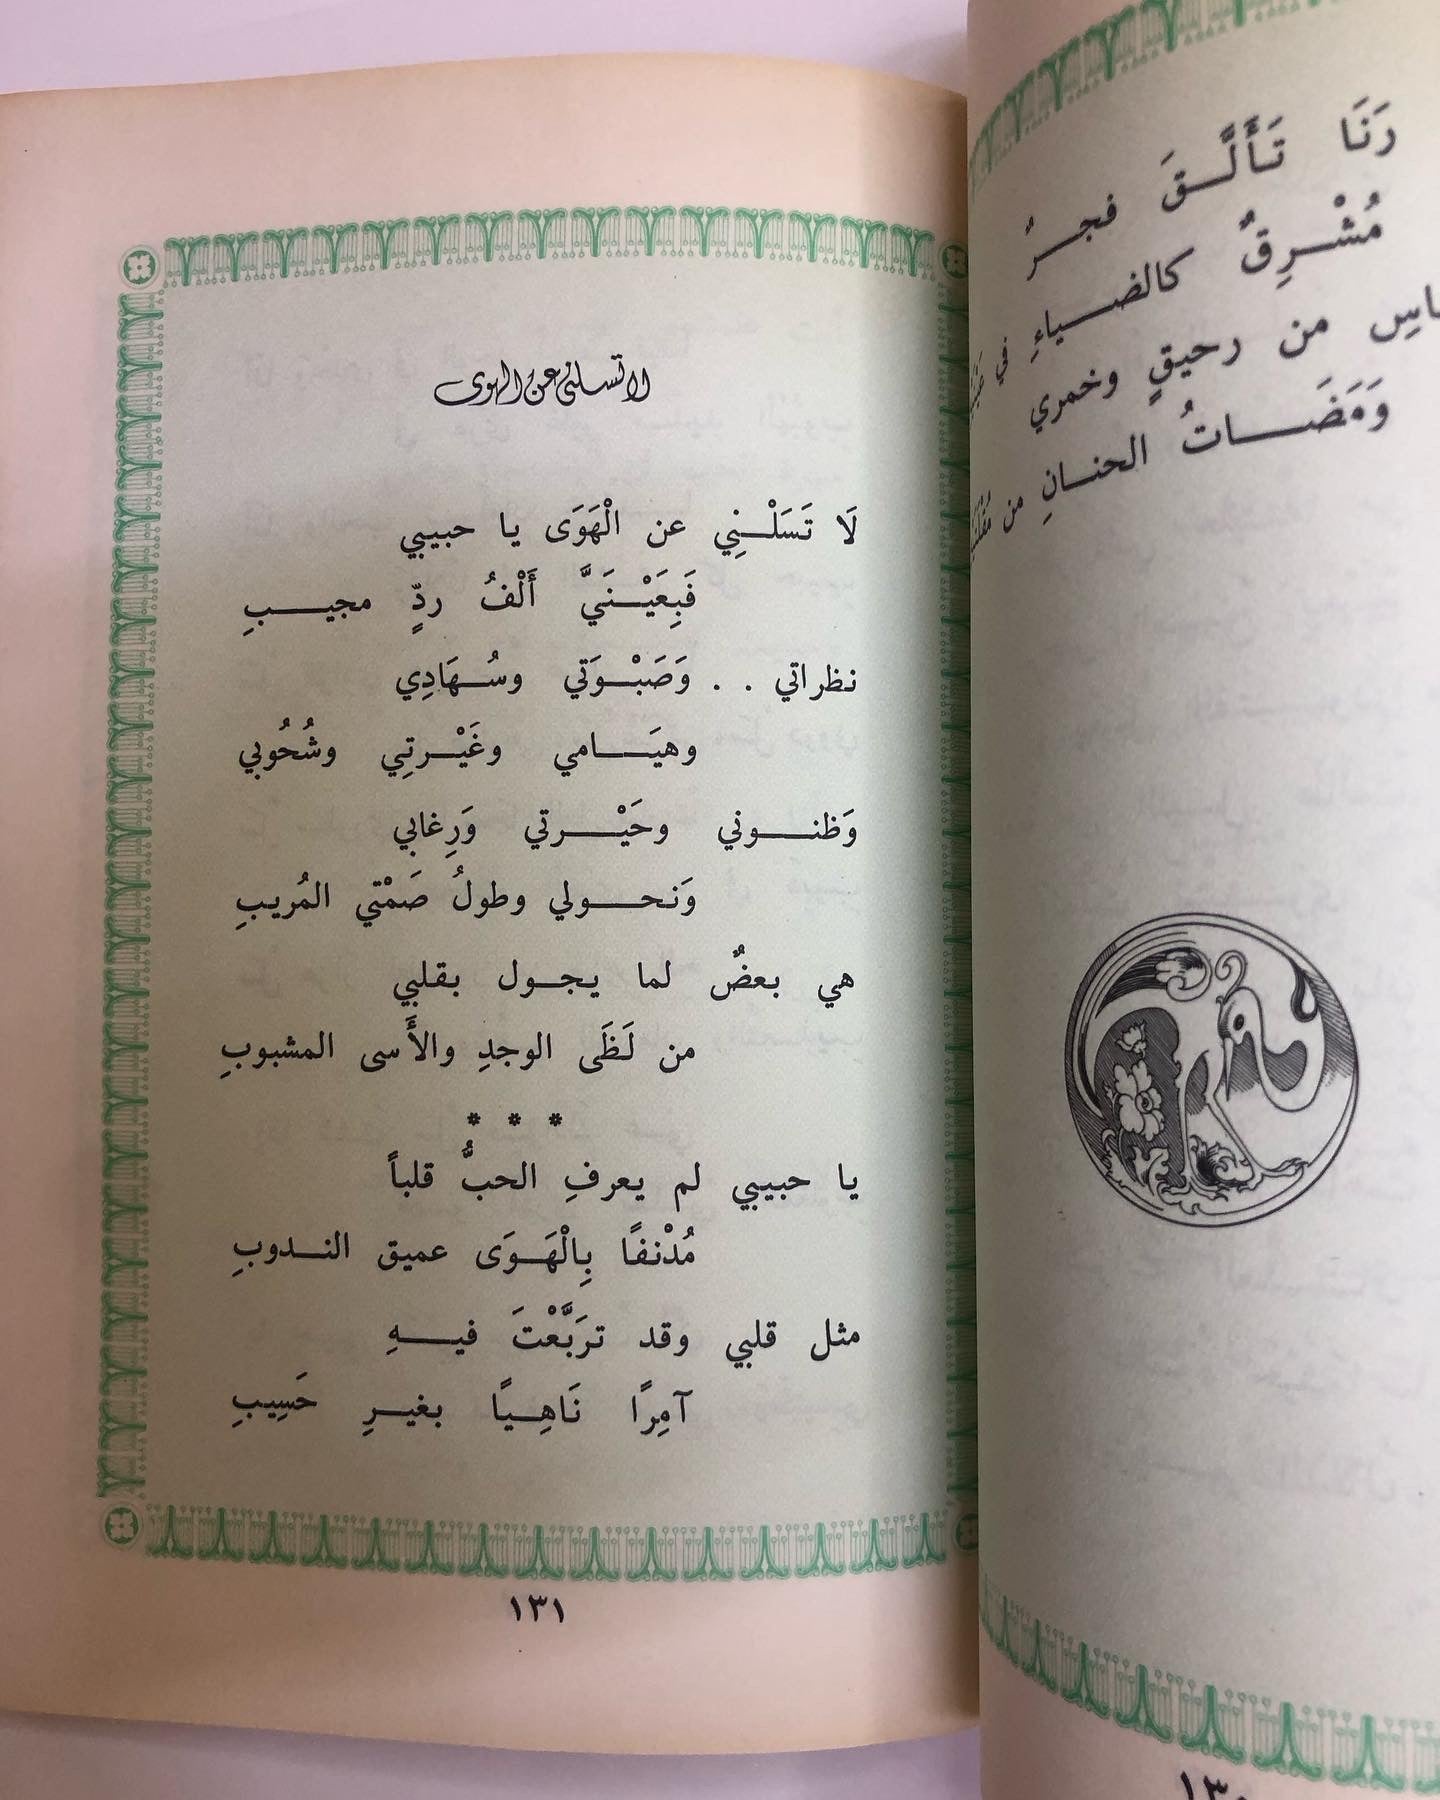 رَنَا تَأَلَّقَ فجرٌ
مُشْرِقٌ كالضياءِ في
من رحيقٍ وخمري
وَمَضَاتُ الحنانِ من
١٣٠
لا تسلني عن الهوى
لَا تَسَلْنِي عن الْهَوَى يا حبيبي
فَبِعَيْنَيَّ أَلْفُ ردٍّ مجيبِ
نظراتي . . وَصَبْوَتي وسُهَادِي
وهيَامي وغَيْرتِي وشُحُوبي
وَظنوني وحَيْرتي وَرِغابي
وَنحولي وطولُ صَمْتي المُريبِ
هي بعضٌ لما يجول بقلبي
من لَظَى الوجدِ والأَسى المشبوبِ
* * *
يا حبيبي لم يعرفِ الحبُّ قلباً
مُدْنفًا بِالْهَوَى عميق الندوبِ
مثل قلبي وقد تربَّعْتَ فيهِ
آمِرًا نَاهِيًا بغيرِ حَسِيبِ
١٣١